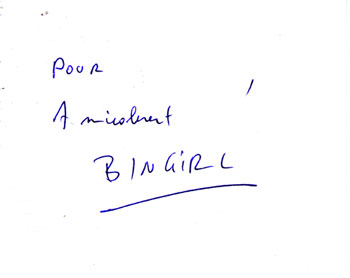 Pour
Amicalement
BINGIRL